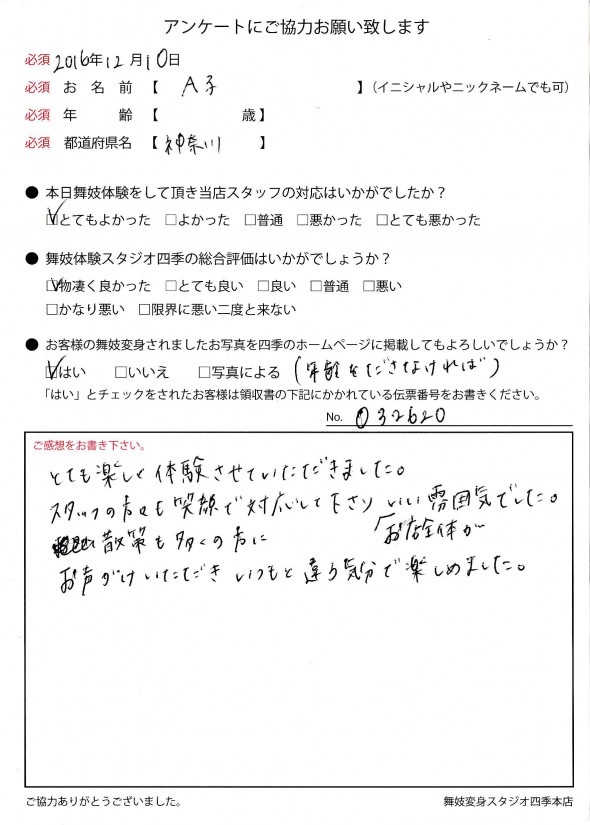 アンケートにご協力お願い致します
必須 2016年12月10日
必須 お名前【 A子 】（イニシャルやニックネームでも可）
必須 年齢【 歳】
必須 都道府県名【 神奈川 】
● 本日舞妓体験をして頂き当店スタッフの対応はいかがでしたか？
☑とてもよかった □よかった □普通 □悪かった □とても悪かった
● 舞妓体験スタジオ四季の総合評価はいかがでしょうか？
☑物凄く良かった □とても良い □良い □普通 □悪い
□かなり悪い □限界に悪い二度と来ない
● お客様の舞妓変身されましたお写真を四季のホームページに掲載してもよろしいでしょうか？
☑はい □いいえ □写真による (年齢をださなければ)
「はい」とチェックをされたお客様は領収書の下記にかかれている伝票番号をお書きください。
No. 032620
ご感想をお書き下さい。
とても楽しく体験させていただきました。
スタッフの方々も笑顔で対応して下さり いい雰囲気でした。
お店全体が
散策も多くの方に
お声がけいただき いつもと違う気分で楽しめました。
ご協力ありがとうございました。
舞妓変身スタジオ四季本店